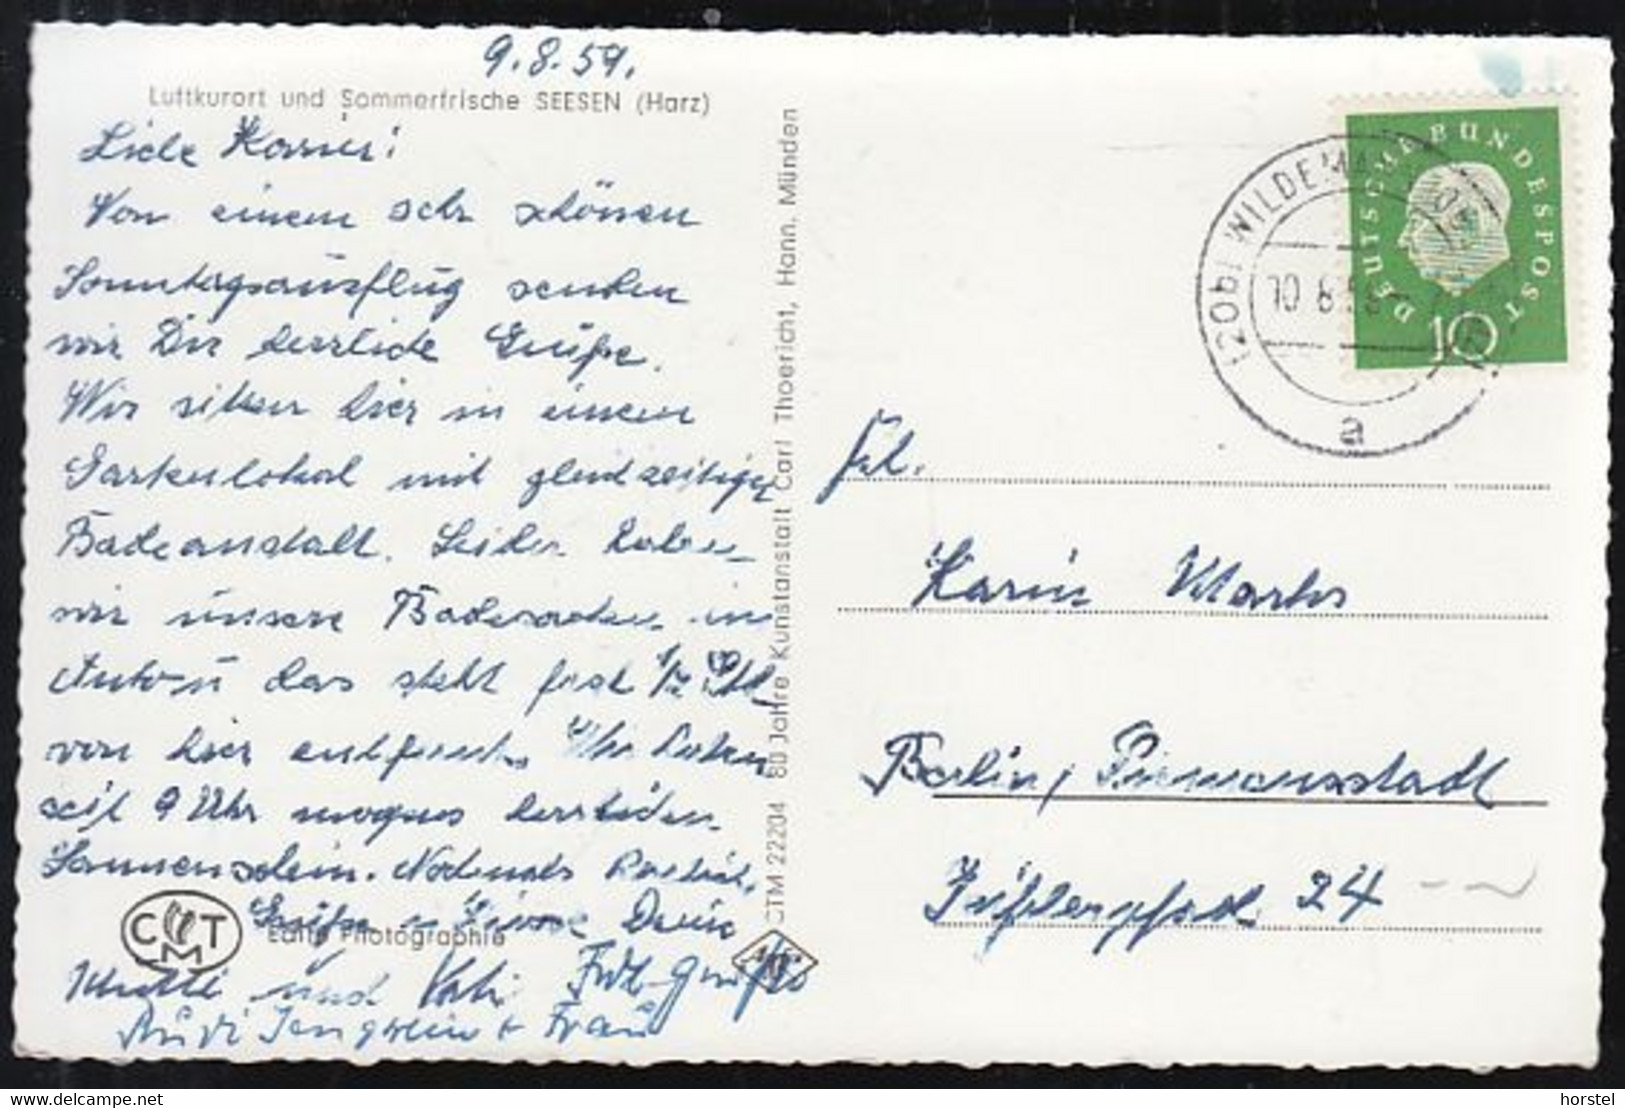 9.8.59.
Luftkurort und Sommerfrische SEESEN (Harz)
Liebe Karin!
Von einem sehr schönen
Sonntagsausflug senden
wir Dir herzliche Grüße.
Wir sitzen hier in einem
Gartenlokal mit gleichzeitiger
Badeanstalt. Leider haben
wir unsere Badesachen im
Auto u das steht fast 1/2 Std
von hier entfernt. Wir hatten
seit 9 Uhr morgens herrlichen
Sonnenschein. Nochmals herzlich
Grüße u Küsse Deine
Mutti und Vati. Frdl. Grüße
Rudi + Frau
Echte Photographie
C M T
CTM 22204 80 Jahre Kunstanstalt Carl Thoericht, Hann. Münden
DEUTSCHE BUNDESPOST
10
(20b) WILDEMANN
10.8.59
a
Frl.
Karin
Berlin,
24
horstel